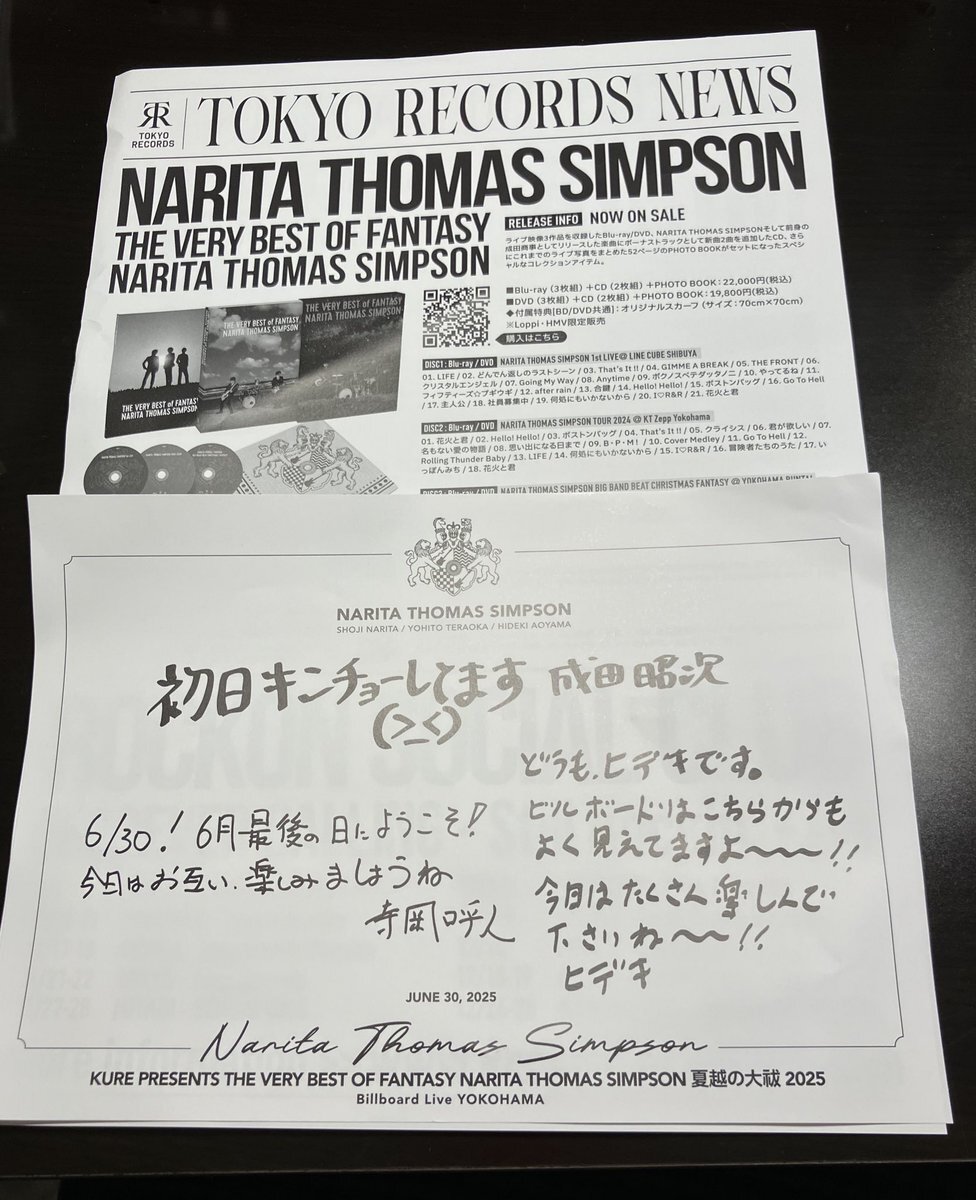 TOKYO RECORDS
TOKYO RECORDS NEWS
NARITA THOMAS SIMPSON
THE VERY BEST OF FANTASY
NARITA THOMAS SIMPSON
RELEASE INFO NOW ON SALE
ライブ映像3作品を収録したBlu-ray/DVD、NARITA THOMAS SIMPSONそして前身の
成田商事としてリリースした楽曲にボーナストラックとして新曲2曲を追加したCD、さら
にこれまでのライブ写真をまとめた52ページのPHOTO BOOKがセットになったスペシ
ャルなコレクションアイテム。
■Blu-ray (3枚組)+CD (2枚組) +PHOTO BOOK : 22,000円(税込)
■DVD (3枚組)+CD (2枚組) +PHOTO BOOK : 19,800円(税込)
◆付属特典[BD/DVD共通] : オリジナルスカーフ (サイズ : 70cm×70cm)
※Loppi・HMV限定販売
購入はこちら
THE VERY BEST of FANTASY
NARITA THOMAS SIMPSON
THE VERY BEST of FANTASY
NARITA THOMAS SIMPSON
THE VERY BEST of FANTASY
NARITA THOMAS SIMPSON
DISC1 : Blu-ray / DVD NARITA THOMAS SIMPSON 1st LIVE@ LINE CUBE SHIBUYA
01. LIFE / 02. どんでん返しのラストシーン / 03. That's It !! / 04. GIMME A BREAK / 05. THE FRONT / 06.
クリスタルエンジェル / 07. Going My Way / 08. Anytime / 09. ボクノスベテダッタノニ / 10. やってるね / 11.
フィフティーズ☆ブギウギ / 12. after rain / 13. 合鍵 / 14. Hello! Hello! / 15. ボストンバッグ / 16. Go To Hell
/ 17. 主人公 / 18. 社員募集中 / 19. 何処にもいかないから / 20. I♡R&R / 21. 花火と君
DISC2 : Blu-ray / DVD NARITA THOMAS SIMPSON TOUR 2024 @ KT Zepp Yokohama
01. 花火と君 / 02. Hello! Hello! / 03. ボストンバッグ / 04. That's It !! / 05. クライシス / 06. 君が欲しい / 07.
名もない愛の物語 / 08. 思い出になる日まで / 09. B・P・M! / 10. Cover Medley / 11. Go To Hell / 12.
Rolling Thunder Baby / 13. LIFE / 14. 何処にもいかないから / 15. I♡R&R / 16. 冒険者たちのうた / 17. い
っぽんみち / 18. 花火と君
NARITA THOMAS SIMPSON BIG BAND BEAT CHRISTMAS FANTASY @ YOKOHAMA
NARITA THOMAS SIMPSON
SHOJI NARITA / YOHITO TERAOKA / HIDEKI AOYAMA
初日キンチョーしてます 成田昭次
(>_<)
どうも、ヒデキです。
ビルボードはこちらからも
よく見えてますよ〜〜〜!!
今日はたくさん楽しんで
下さいね〜〜!!
ヒデキ
6/30! 6月最後の日にようこそ!
今日はお互い、楽しみましょうね
寺岡呼人
JUNE 30, 2025
Narita Thomas Simpson
KURE PRESENTS THE VERY BEST OF FANTASY NARITA THOMAS SIMPSON 夏越の大祓 2025
Billboard Live YOKOHAMA